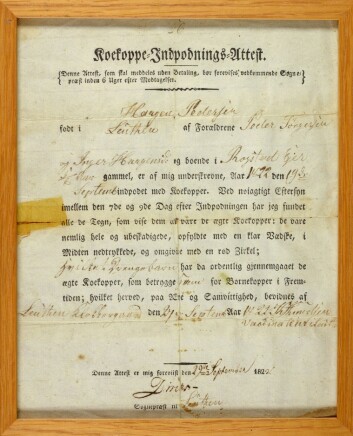 Kockoppe-Indpodnings-Attest.
(Denne Attest, som skal meddeles uden Betaling, bør forevises vedkommende Sogne-
præst inden 6 Uger efter Modtagelsen.)
Haagen Pedersen
født i Leuthen af Forældrene Peder
og Inger og boende i
gammel, er af mig underskrevne, Aar 1822 den 19de
Septemb indpodet med Kockopper. Ved nøiagtigt Eftersyn
imellem den 7de og 9de Dag efter Indpodningen har jeg fundet
alle de Tegn, som vise dem at være de ægte Kockopper: de vare
nemlig hele og ubeskadigede, opfyldte med en klar Vædske, i
Midten nedtrykkede, og omgivne med en rød Zirkel;
har da ordentlig gjennemgaaet de
ægte Kockopper, som betrygge ham for Børnekopper i Frem-
tiden; hvilket herved, paa Ære og Samvittighed, bevidnes af
Leuthen den 27 Septemb Aar 1822
Denne Attest er mig forevist den 29de September 1822
Sognepræst til Leuthen